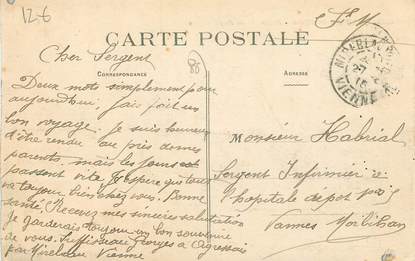 12-6
F. M
CARTE POSTALE
CORRESPONDANCE
ADRESSE
86
MIREBEAU
VIENNE
Cher Sergent
Deux mots simplement pour
aujourdhui, jais fait un
bon voyage. je suis heureux
d'être rendu au près de mes
parents mais les jours
passent vite J'espère que tout
va toujour bien chez vous. Bonne
santé, Recevez mes sincères salutation
je garderais toujour un bon souvenir
de vous. Georges a
par Mirebeau Vienne
Monsieur Habrial
Sergent Infirmier a
l'hopitale dépot
Vannes Morbihan